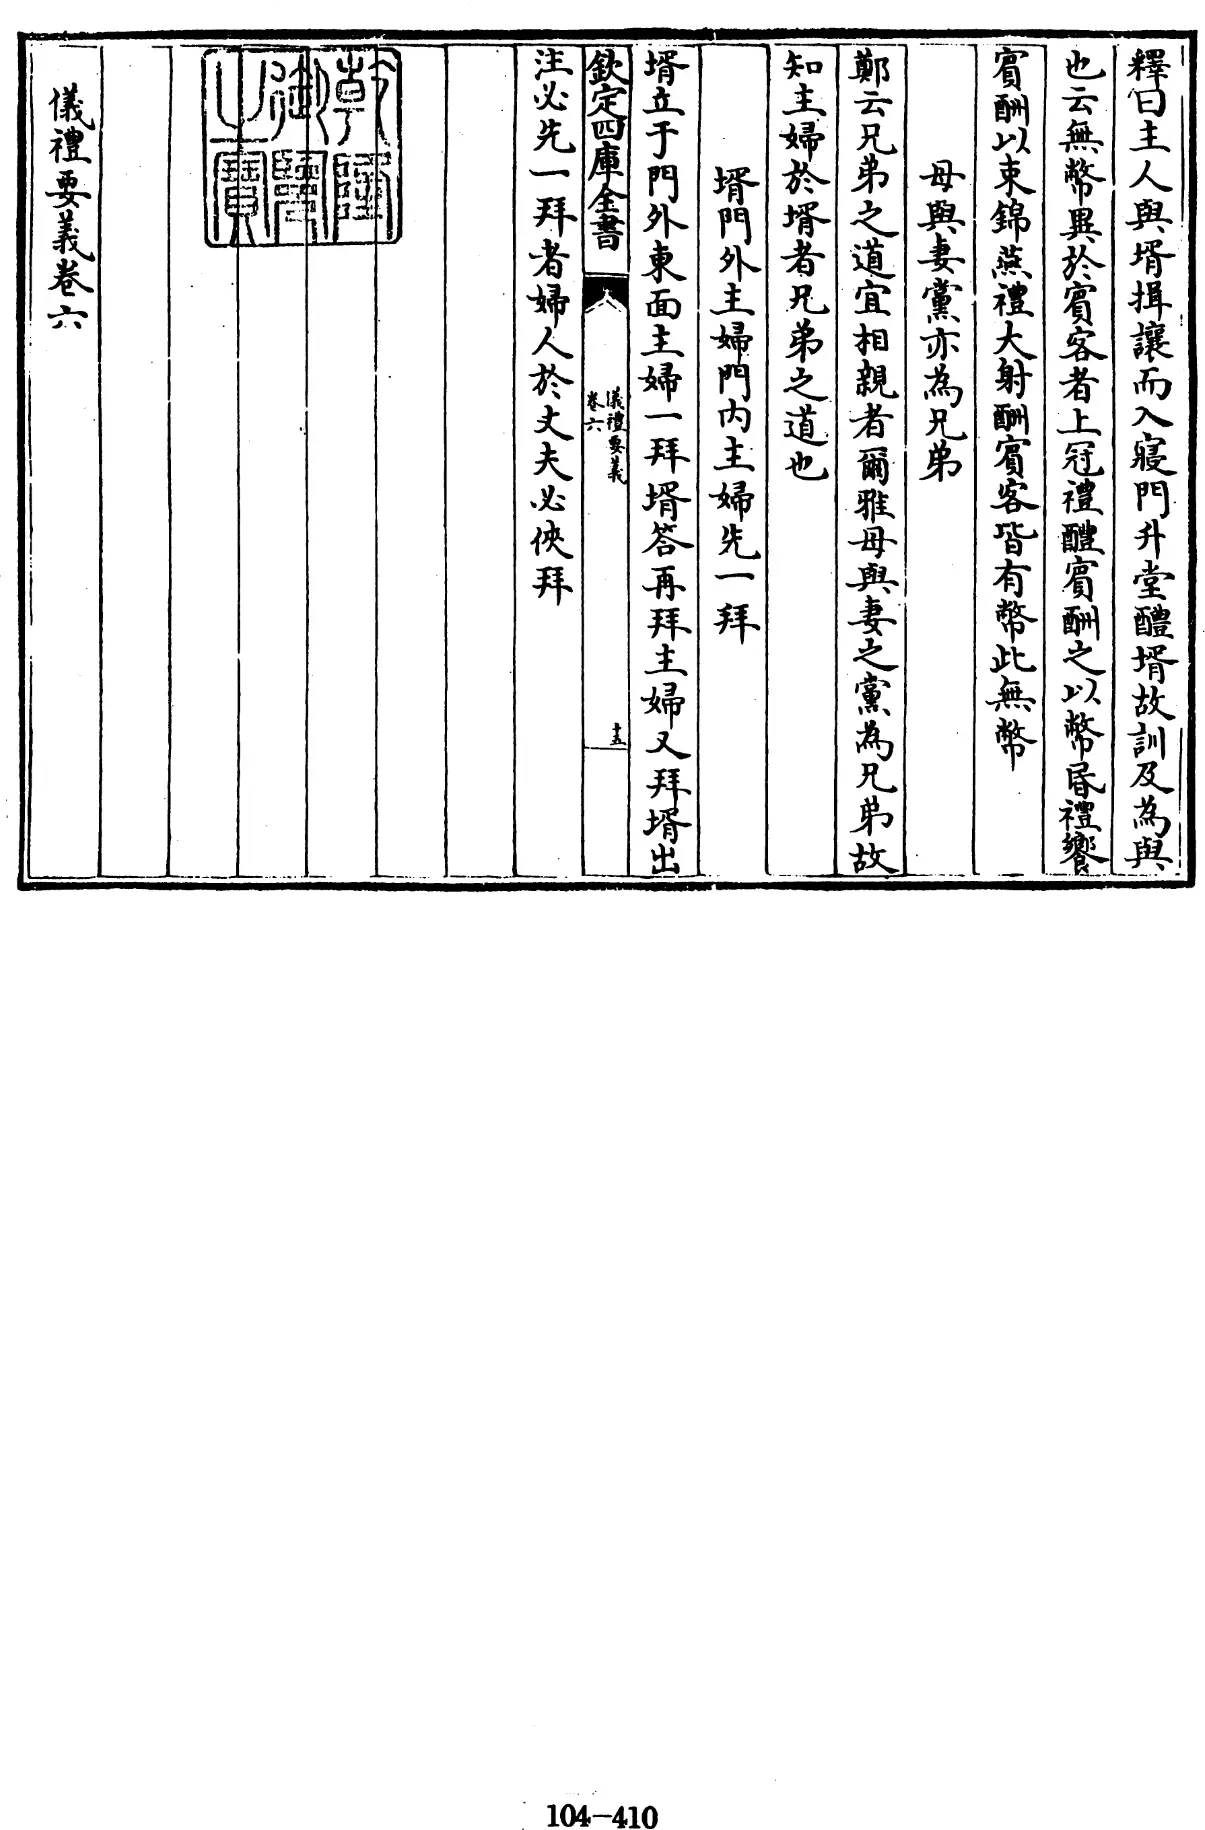 釋曰主人與壻揖讓而入寢門升堂醴壻故訓及為與
也云無幣異於賓客者上冠禮醴賓酬之以幣昏禮饗
賓酬以束錦燕禮大射酬賓客皆有幣此無幣
母與妻黨亦為兄弟
鄭云兄弟之道宜相親者爾雅母與妻之黨為兄弟故
知主婦於壻者兄弟之道也
壻門外主婦門内主婦先一拜
壻立于門外東面主婦一拜壻答再拜主婦又拜壻出
欽定四庫全書
儀禮要義
卷六
十五
注必先一拜者婦人於丈夫必俠拜
乾隆御覽之寶
儀禮要義卷六
104-410